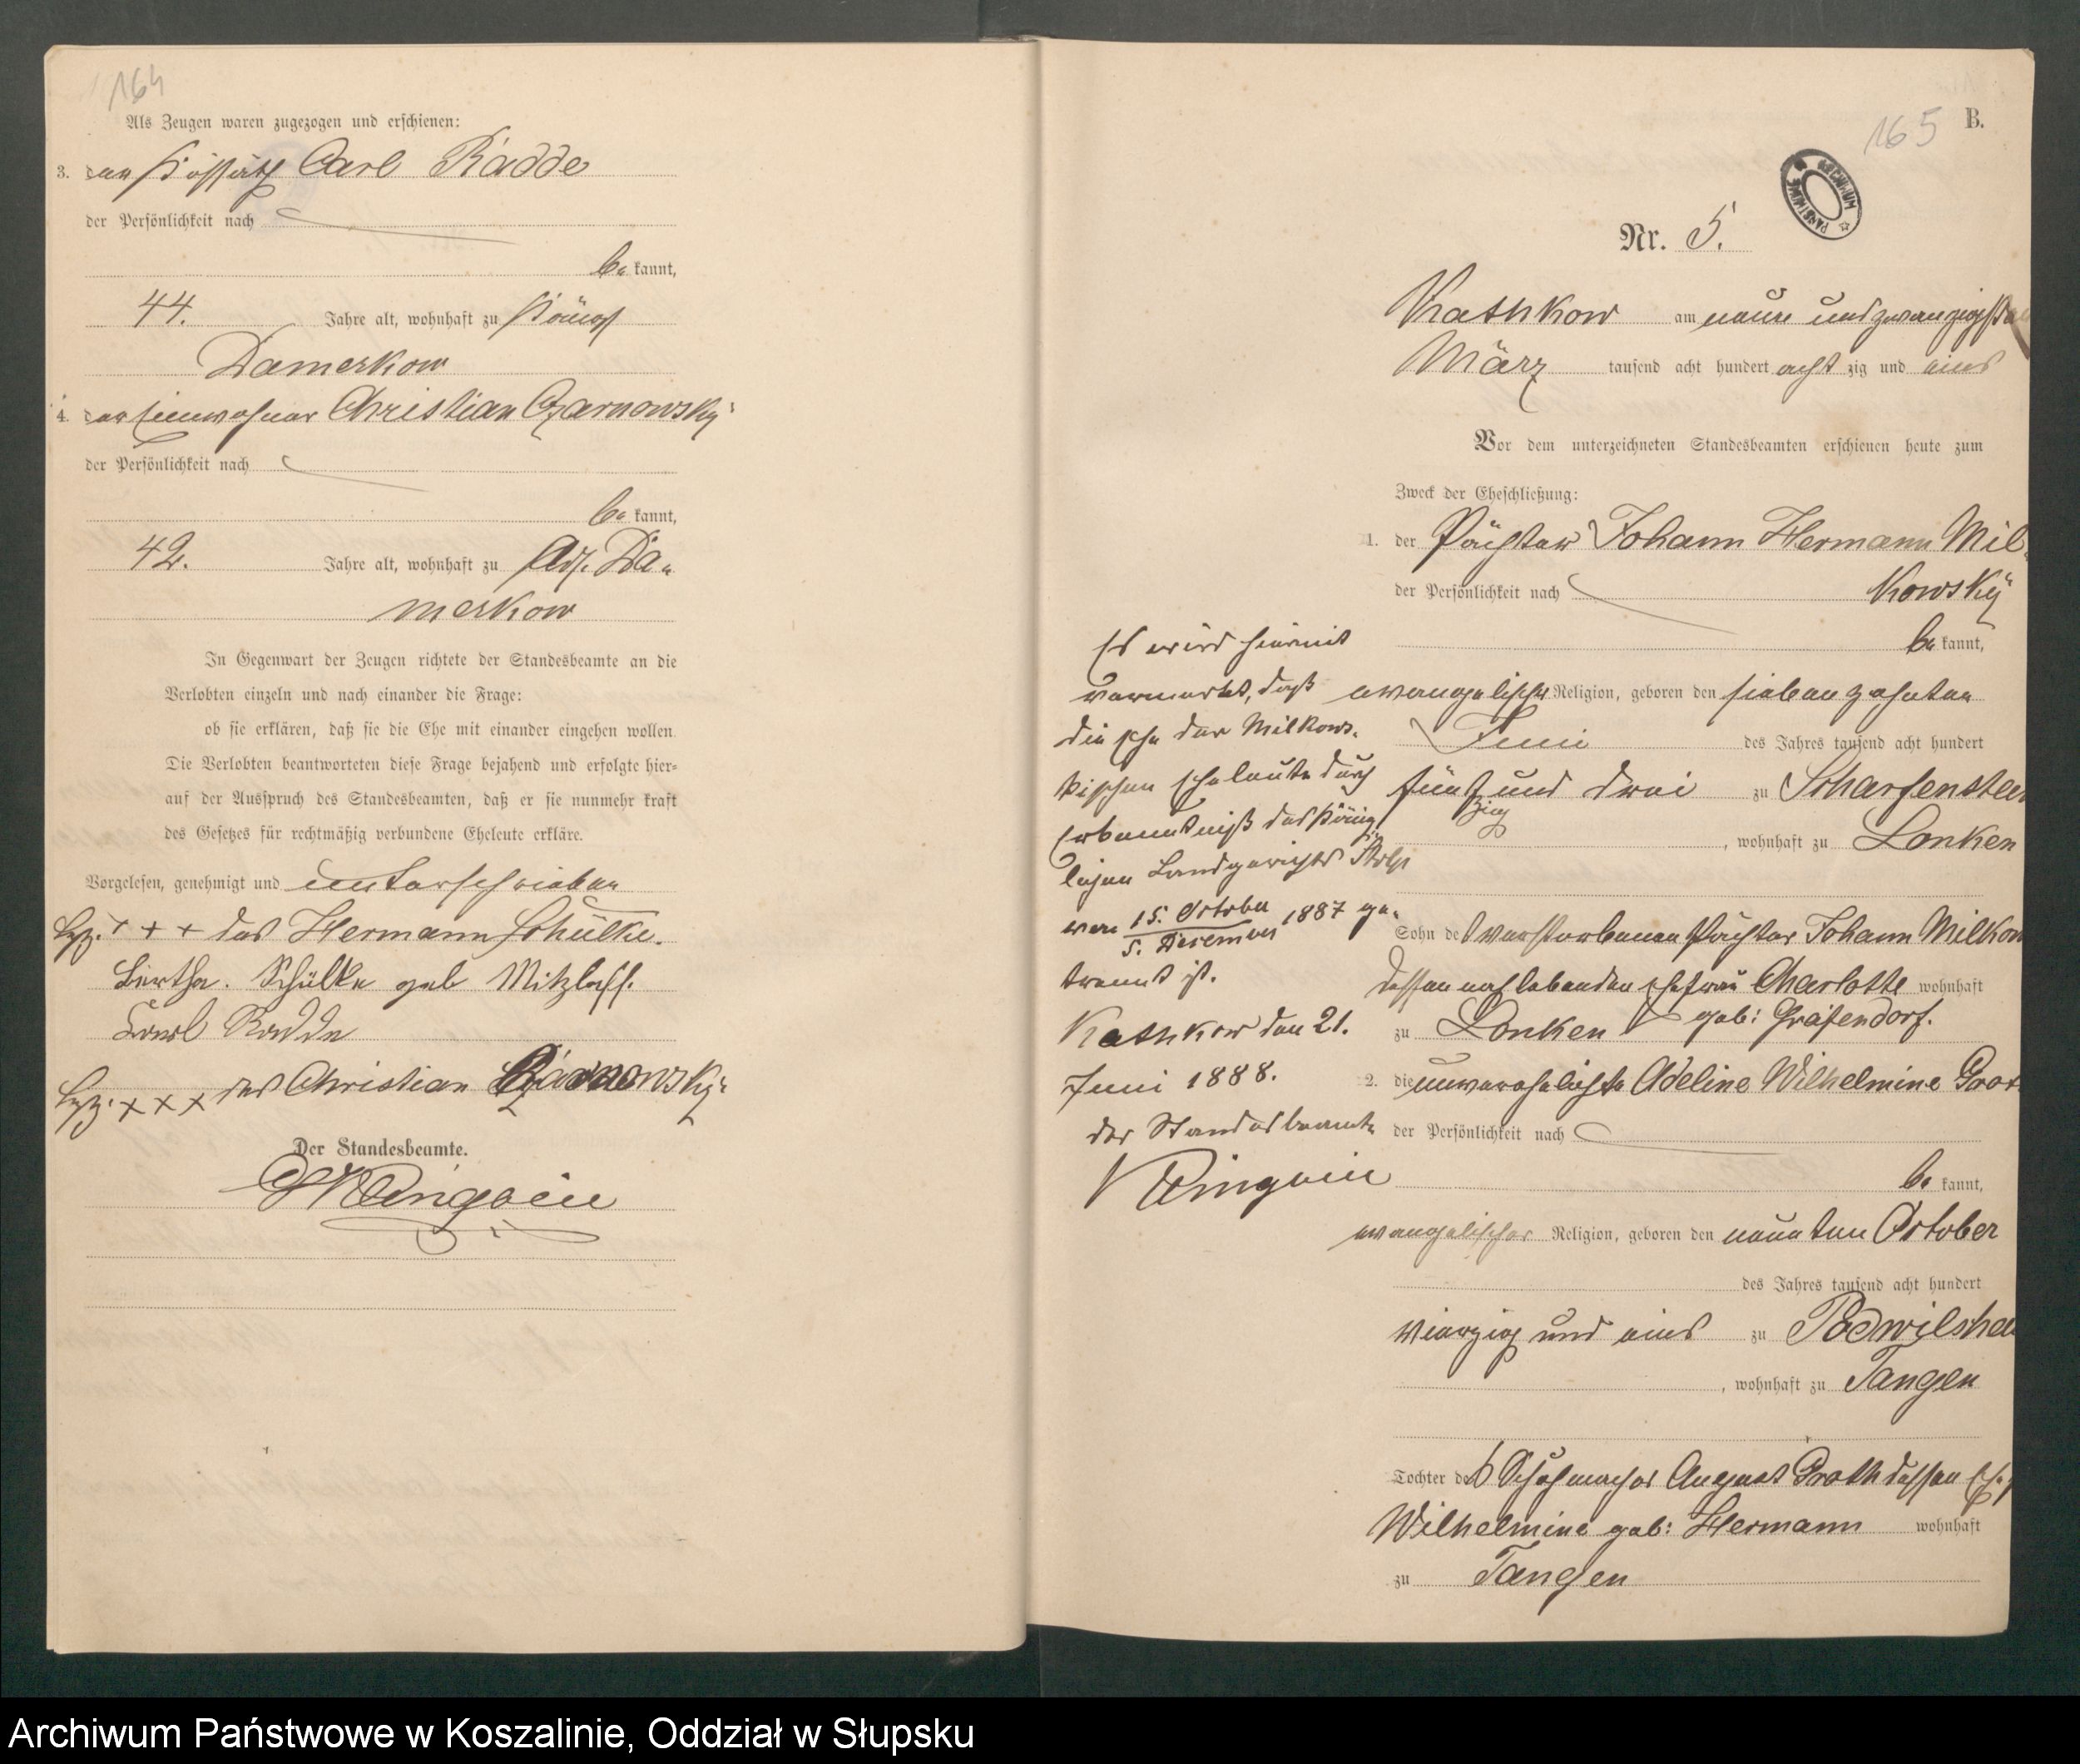 164
Als Zeugen waren zugezogen und erschienen:
3. der Kossäth Carl Radde
der Persönlichkeit nach
be kannt,
44. Jahre alt, wohnhaft zu Königl
Damerkow
4. der Einwohner Christian Czarnowsky
der Persönlichkeit nach
be kannt,
42. Jahre alt, wohnhaft zu Adl. Da-
merkow
In Gegenwart der Zeugen richtete der Standesbeamte an die
Verlobten einzeln und nach einander die Frage:
ob sie erklären, daß sie die Ehe mit einander eingehen wollen
Die Verlobten beantworteten diese Frage bejahend und erfolgte hier-
auf der Ausspruch des Standesbeamten, daß er sie nunmehr kraft
des Gesetzes für rechtmäßig verbundene Eheleute erkläre.
Vorgelesen, genehmigt und unterschrieben
+ + + des Hermann Schülke.
Bertha. Schülke geb Mitzlaff.
Carl Radde
x x x des Christian Czarnowsky
Der Standesbeamte.
165 B.
ARCHIWUM PAŃSTWOWE
Nr. 5.
Kathkow am neun und zwanzigsten
März tausend acht hundert acht zig und eins
Vor dem unterzeichneten Standesbeamten erschienen heute zum
Zweck der Eheschließung:
1. der Pächter Johann Hermann Mil-
der Persönlichkeit nach kowsky
be kannt,
evangelischer Religion, geboren den siebenzehnten
Juni des Jahres tausend acht hundert
fünf und drei zu Scharfenstein
zig , wohnhaft zu Lonken
Sohn des verstorbenen Pächter Johann Milkow
dessen nachlebenden Ehefrau Charlotte wohnhaft
zu Lonken geb: Gräfendorf.
2. die unverehelichte Adeline Wilhelmine Grot
der Persönlichkeit nach
be kannt,
evangelischer Religion, geboren den neunten October
des Jahres tausend acht hundert
vierzig und eins zu Podwilshen
, wohnhaft zu Tangen
Tochter des Schuhmacher August Groth dessen
Wilhelmine geb: Hermann wohnhaft
zu Tangen
Es wird hiermit
vermerkt, daß
die Ehe der Milkows-
kischen Eheleute durch
Erkenntniß des König-
lichen Landgerichts Stolp
vom 15. October
5. Dezember 1887 ge-
trennt ist.
Kathkow den 21.
Juni 1888.
Der Standesbeamte
Archiwum Państwowe w Koszalinie, Oddział w Słupsku